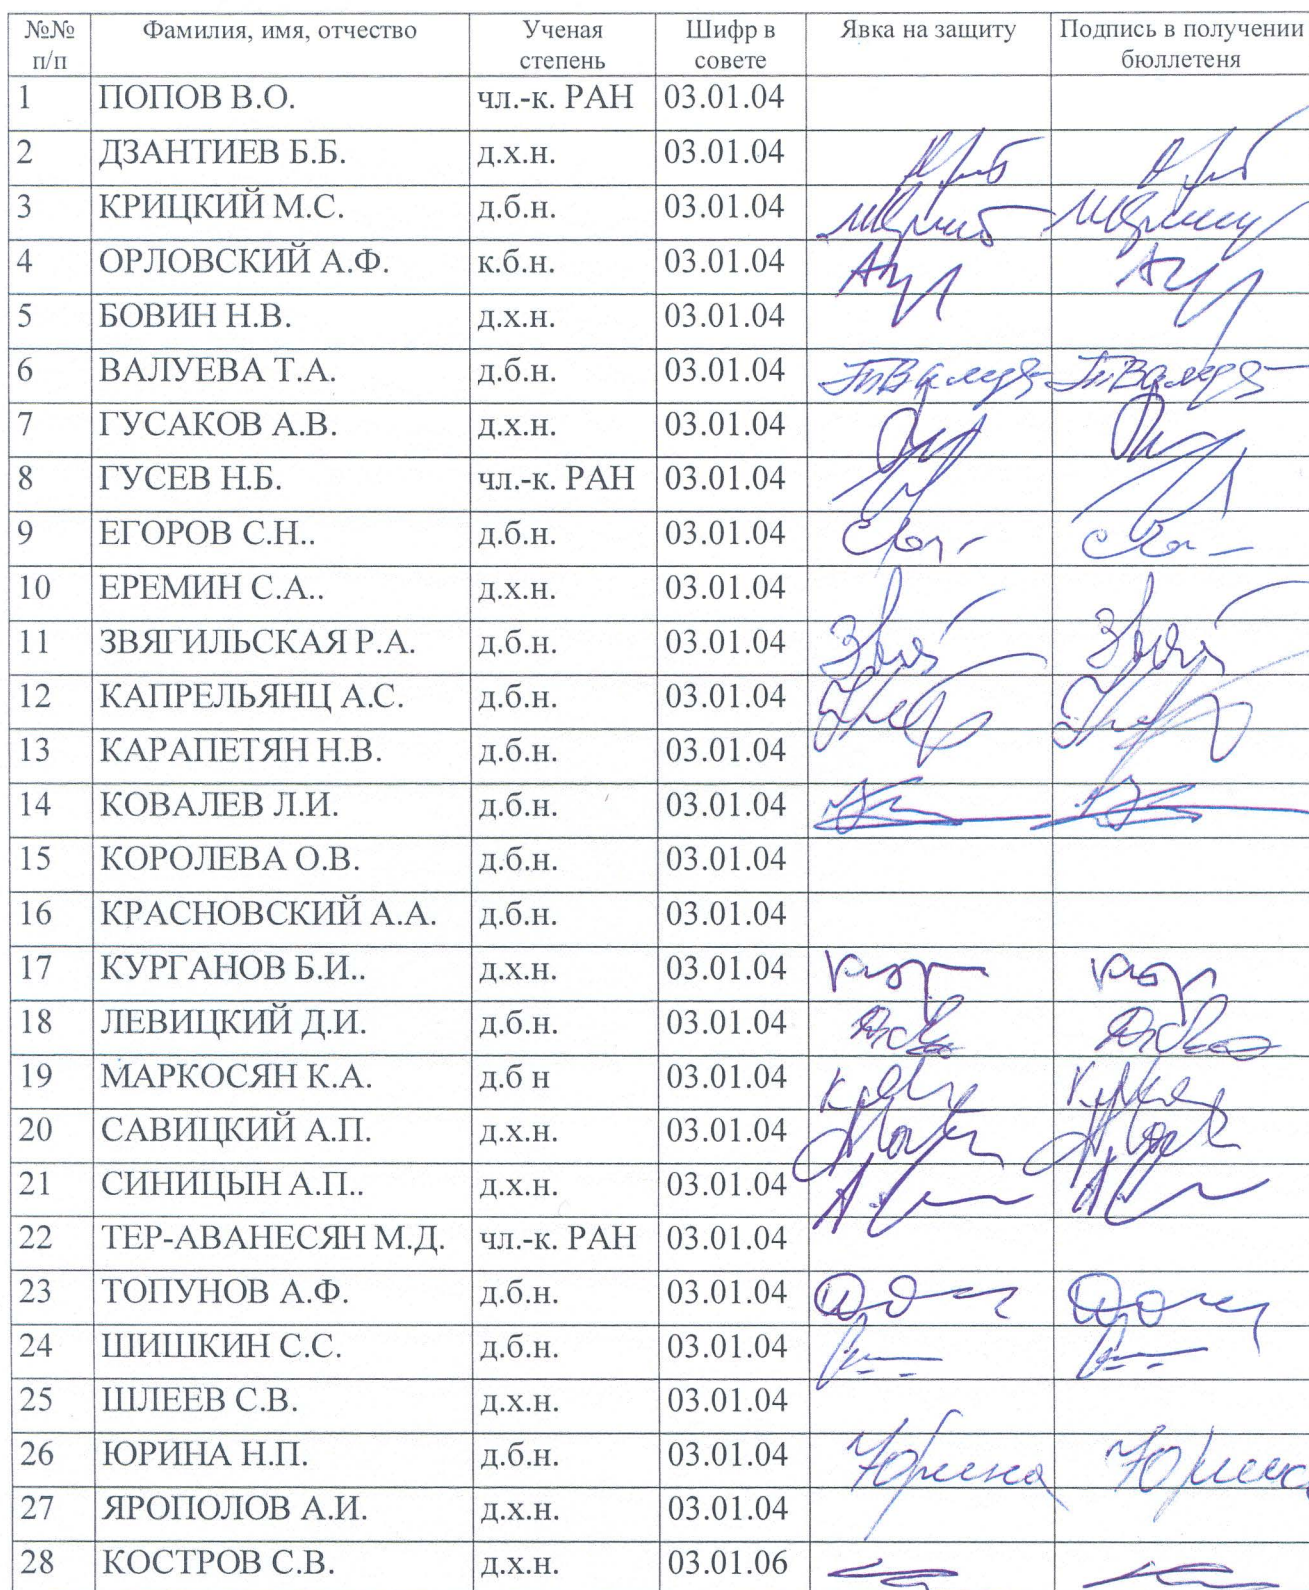 №№ п/п Фамилия, имя, отчество Ученая степень Шифр в совете Явка на защиту Подпись в получении бюллетеня
1 ПОПОВ В.О. чл.-к. РАН 03.01.04
2 ДЗАНТИЕВ Б.Б. д.х.н. 03.01.04
3 КРИЦКИЙ М.С. д.б.н. 03.01.04
4 ОРЛОВСКИЙ А.Ф. к.б.н. 03.01.04
5 БОВИН Н.В. д.х.н. 03.01.04
6 ВАЛУЕВА Т.А. д.б.н. 03.01.04
7 ГУСАКОВ А.В. д.х.н. 03.01.04
8 ГУСЕВ Н.Б. чл.-к. РАН 03.01.04
9 ЕГОРОВ С.Н.. д.б.н. 03.01.04
10 ЕРЕМИН С.А.. д.х.н. 03.01.04
11 ЗВЯГИЛЬСКАЯ Р.А. д.б.н. 03.01.04
12 КАПРЕЛЬЯНЦ А.С. д.б.н. 03.01.04
13 КАРАПЕТЯН Н.В. д.б.н. 03.01.04
14 КОВАЛЕВ Л.И. д.б.н. 03.01.04
15 КОРОЛЕВА О.В. д.б.н. 03.01.04
16 КРАСНОВСКИЙ А.А. д.б.н. 03.01.04
17 КУРГАНОВ Б.И.. д.х.н. 03.01.04
18 ЛЕВИЦКИЙ Д.И. д.б.н. 03.01.04
19 МАРКОСЯН К.А. д.б н 03.01.04
20 САВИЦКИЙ А.П. д.х.н. 03.01.04
21 СИНИЦЫН А.П.. д.х.н. 03.01.04
22 ТЕР-АВАНЕСЯН М.Д. чл.-к. РАН 03.01.04
23 ТОПУНОВ А.Ф. д.б.н. 03.01.04
24 ШИШКИН С.С. д.б.н. 03.01.04
25 ШЛЕЕВ С.В. д.х.н. 03.01.04
26 ЮРИНА Н.П. д.б.н. 03.01.04 Юрина Юрина
27 ЯРОПОЛОВ А.И. д.х.н. 03.01.04
28 КОСТРОВ С.В. д.х.н. 03.01.06